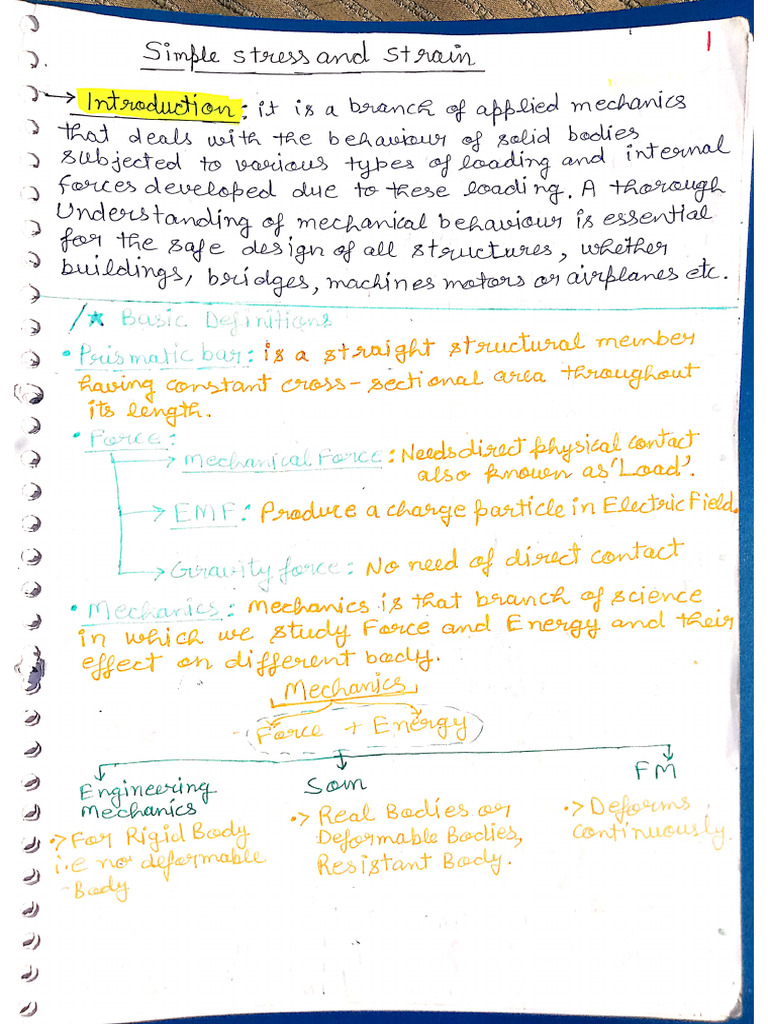 1
Simple stress and strain
→ Introduction: it is a branch of applied mechanics
that deals with the behaviour of solid bodies
subjected to various types of loading and internal
forces developed due to these loading. A thorough
Understanding of mechanical behaviour is essential
for the safe design of all structures, whether
buildings, bridges, machines motors or airplanes etc.
/* Basic Definitions
• Prismatic bar: is a straight structural member
having constant cross-sectional area throughout
its length.
• Force:
→ Mechanical Force: Needs direct physical contact
also known as 'Load'.
→ EMF: Produce a charge particle in Electric Field.
→ Giravity force: No need of direct contact
• Mechanics: Mechanics is that branch of science
in which we study Force and Energy and their
effect on different body.
Mechanics
Force + Energy
Engineering Mechanics
•> For Rigid Body
i.e no deformable
Body
Som
•> Real Bodies or
Deformable Bodies,
Resistant Body.
FM
•> Deforms
continuously.